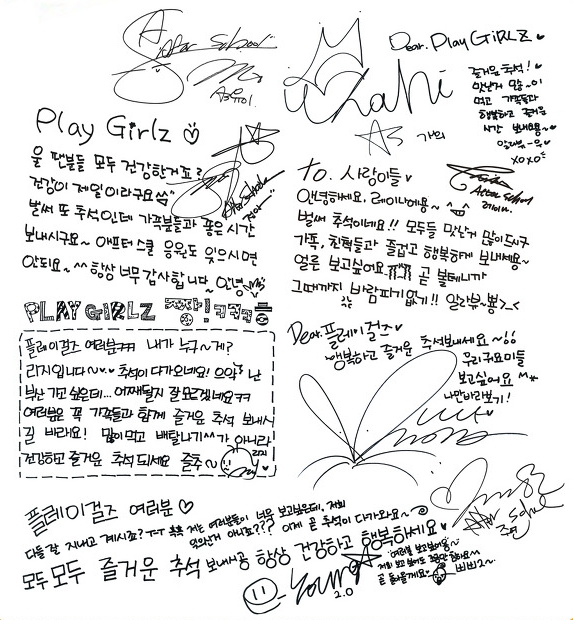 After School
Dear. Play GiRLZ ♥
즐거운 추석!♥
맛난거 많~이
먹고 가족들과
행복하고 즐거운
시간 보내요~
xoxo
Kahi
AS 가희
Play Girlz ♡
울 팬분들 모두 건강한거죠?
건강이 제일이라구요
벌써 또 추석인데 가족분들과 좋은시간
보내시구요~ 애프터스쿨 응원도 잊으시면
안되요~^^ 항상 너무 감사합니다~ 안녕
After School
정아
to. 사랑이들♥
After School
레이나
안녕하세요, 레이나에용~
벌써 추석이네요!! 모두들 맛난거 많이드시구
가족, 친척들과 즐겁고 행복하게 보내세용~
얼른 보고싶어요 곧 볼테니까
그때까지 바람피기없기!! 알라뷰~뿅>_<
PLAY GIRLZ
플레이걸즈 여러분ㅋㅋ 내가 누구~게?
리지입니다~ 추석이 다가오네요! 으악? 난
부산 가고싶은데... 어째될지 잘모르겠네요ㅋㅋ
여러분은 꼭 가족들과 함께 즐거운 추석 보내시
길 바래요! 많이먹고 배탈나기^^가 아니라
건강하고 즐거운 추석 되세요 즐추~
리지
Dear. 플레이걸즈♥
행복하고 즐거운 추석보내세요~!!
우리귀요미들
보고싶어요
나만바라보기!
플레이걸즈 여러분♡
다들 잘 지내고 계시죠? T-T 저는 여러분들이 너무 보고싶은데, 저희
잊으신거 아니죠??? 이제 곧 추석이 다가와요~
모두모두 즐거운 추석 보내시공 항상 건강하고 행복하세요♥
Young
2.0
After School
주연
여러분 보고싶어용~
저희 보고싶어도 조금만 참아요
곧 돌아올게요